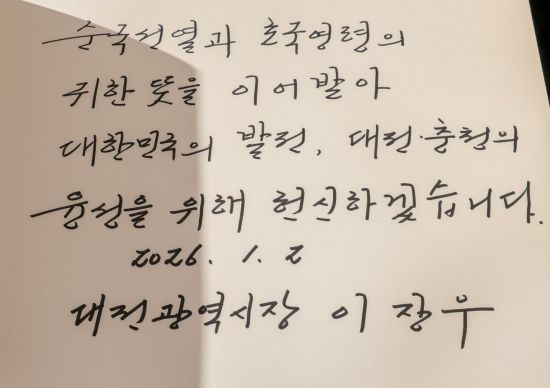 순국선열과 호국영령의
귀한 뜻을 이어받아
대한민국의 발전, 대전·충청의
융성을 위해 헌신하겠습니다.
2026. 1. 2
대전광역시장 이장우